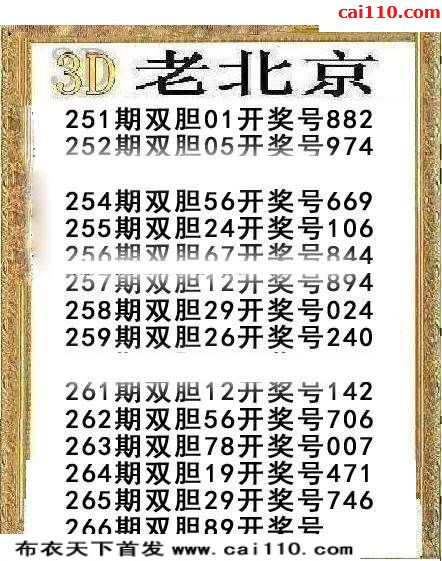 cai110.com
3D 老北京
251期双胆01开奖号882
252期双胆05开奖号974
254期双胆56开奖号669
255期双胆24开奖号106
256期双胆67开奖号844
257期双胆12开奖号894
258期双胆29开奖号024
259期双胆26开奖号240
261期双胆12开奖号142
262期双胆56开奖号706
263期双胆78开奖号007
264期双胆19开奖号471
265期双胆29开奖号746
266期双胆89开奖号
布衣天下首发 www.cai110.com